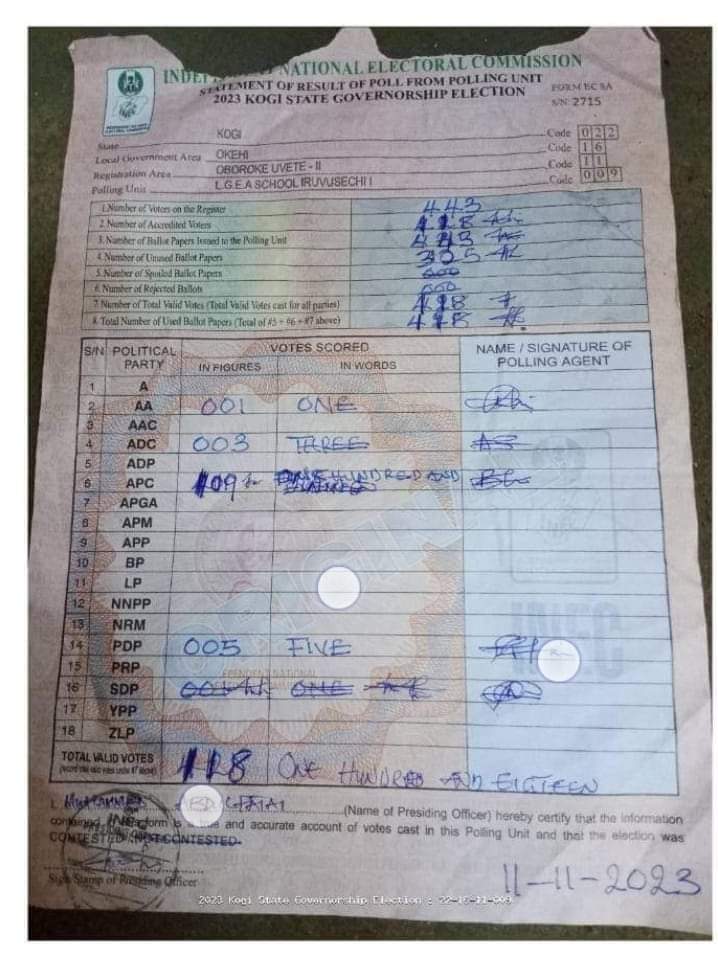 NATIONAL ELECTORAL COMMISSION
STATEMENT OF RESULT OF POLL FROM POLLING UNIT
2023 KOGI STATE GOVERNORSHIP ELECTION
FORM EC 8A
S/N: 2715
State KOGI Code 022
Local Government Area OKEHI Code 16
Registration Area OBOROKE UVETE - II Code 11
Polling Unit L.G.E.A SCHOOL IRUVUSECHI I Code 009
1. Number of Voters on the Register 443
2. Number of Accredited Voters
3. Number of Ballot Papers Issued to the Polling Unit
4. Number of Unused Ballot Papers
5. Number of Spoiled Ballot Papers 000
6. Number of Rejected Ballots 000
7. Number of Total Valid Votes (Total Valid Votes cast for all parties)
8. Total Number of Used Ballot Papers (Total of #5 + #6 + #7 above)
S/N POLITICAL PARTY VOTES SCORED NAME / SIGNATURE OF POLLING AGENT
IN FIGURES IN WORDS
1 A
2 AA 001 ONE
3 AAC
4 ADC 003 THREE
5 ADP
6 APC 109 HUNDRED AND
7 APGA
8 APM
9 APP
10 BP
11 LP
12 NNPP
13 NRM
14 PDP 005 FIVE
15 PRP
16 SDP 001 ONE
17 YPP
18 ZLP
TOTAL VALID VOTES ONE HUNDRED AND EIGTEEN
I, MUHAMMED (Name of Presiding Officer) hereby certify that the information
contained form is a and accurate account of votes cast in this Polling Unit and that the election was
CONTESTED / NOT CONTESTED.
Sign/Stamp of Presiding Officer
11-11-2023
2023 Kogi State Governorship Election : 22-16-11-009